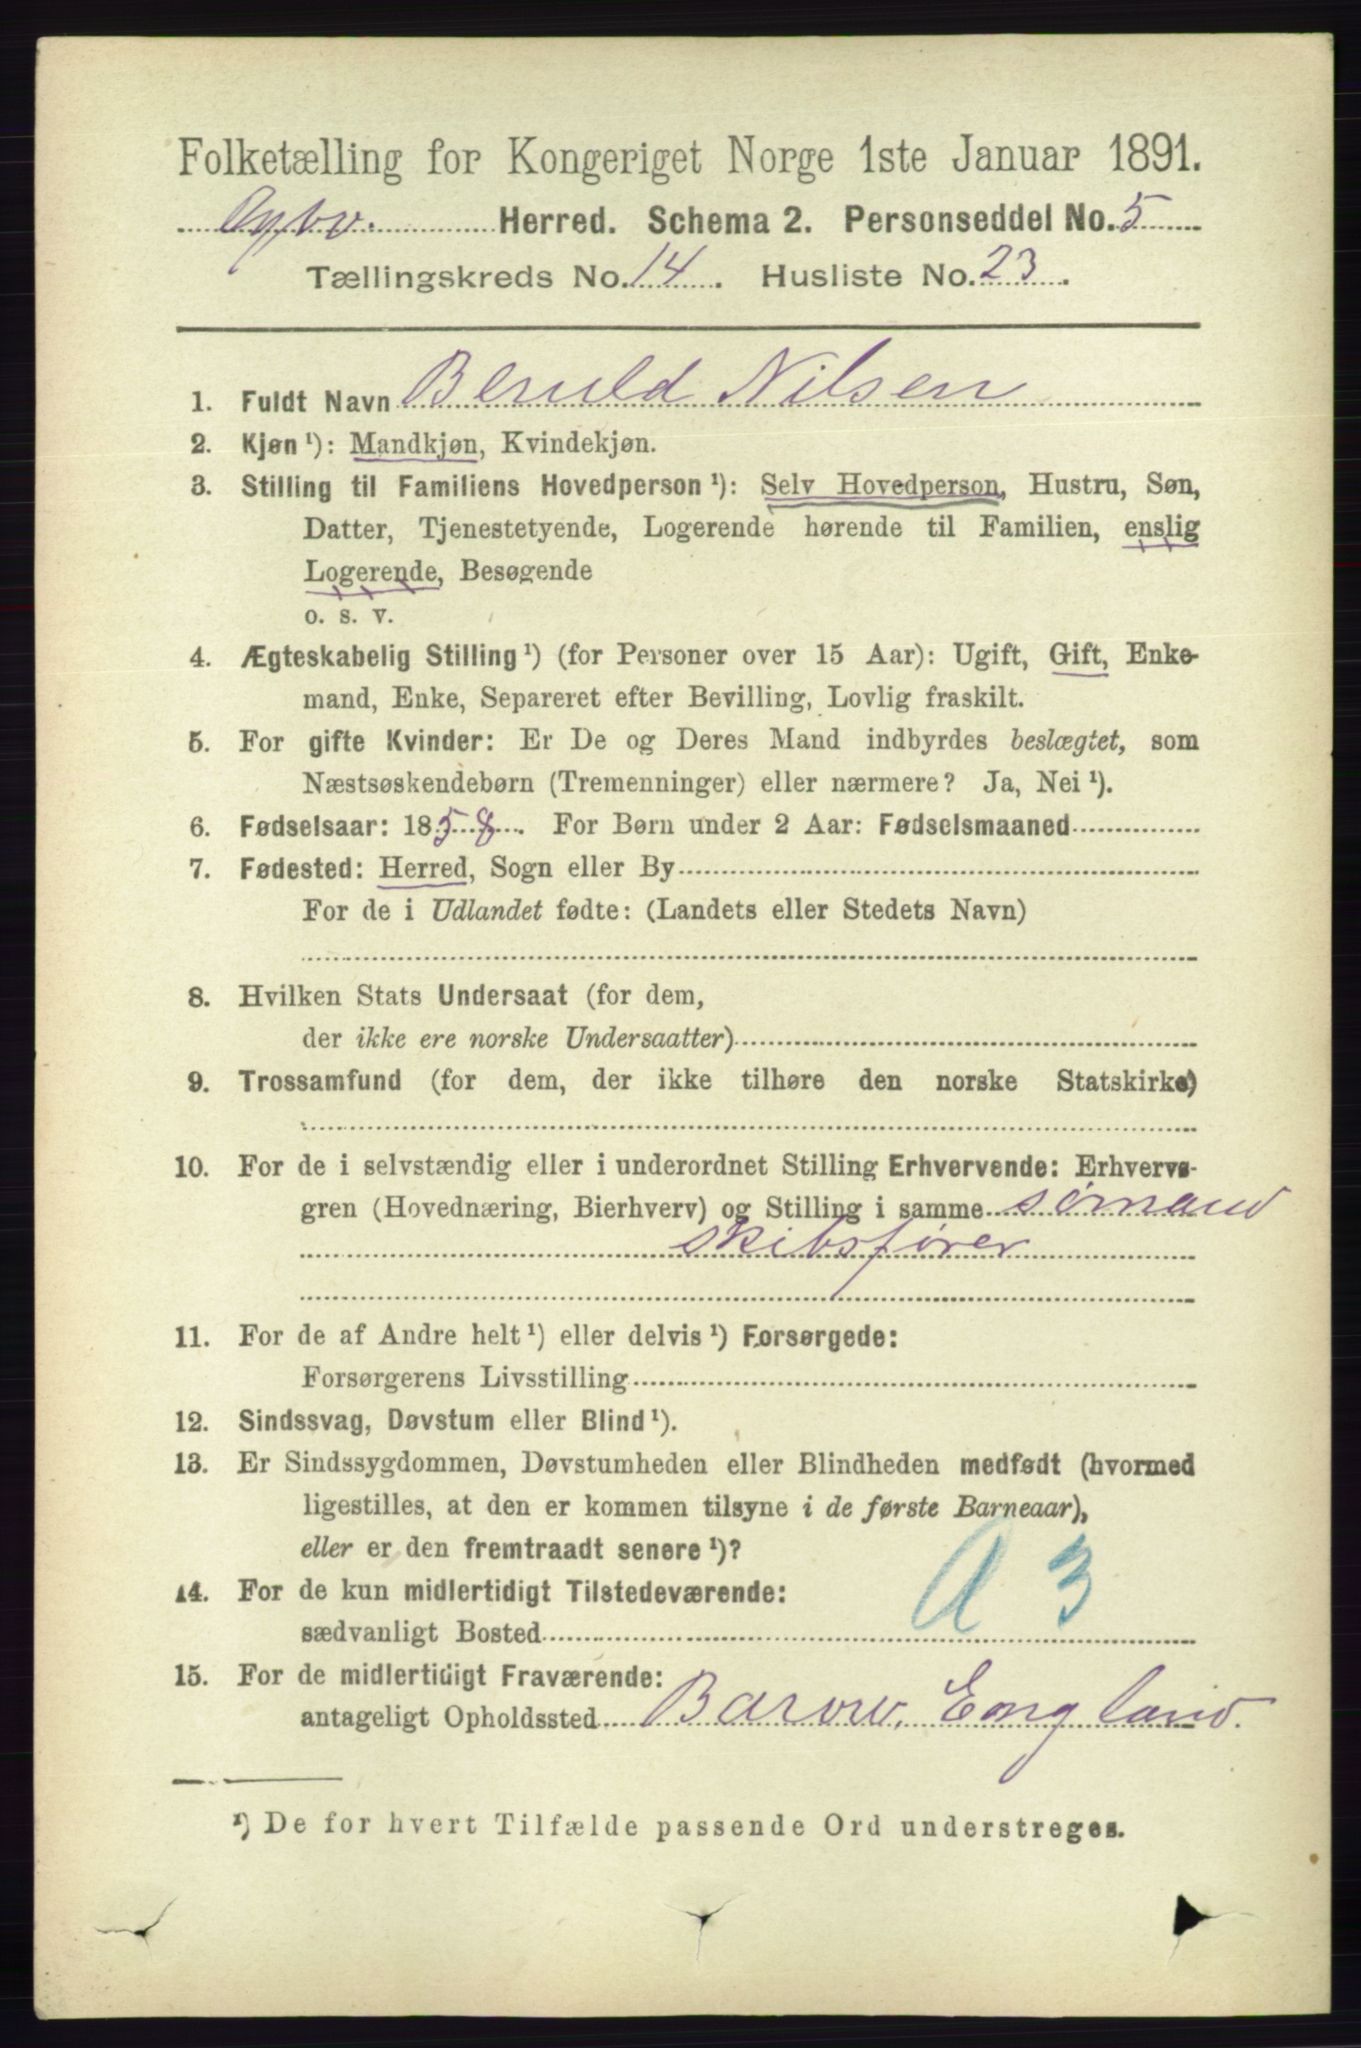 Folketælling for Kongeriget Norge 1ste Januar 1891.
Herred. Schema 2. Personseddel No. 5
Tællingskreds No. 14. Husliste No. 23.
1. Fuldt Navn Nilsen
2. Kjøn ¹): Mandkjøn, Kvindekjøn.
3. Stilling til Familiens Hovedperson ¹): Selv Hovedperson, Hustru, Søn,
Datter, Tjenestetyende, Logerende hørende til Familien, enslig
Logerende, Besøgende
o. s. v.
4. Ægteskabelig Stilling ¹) (for Personer over 15 Aar): Ugift, Gift, Enke-
mand, Enke, Separeret efter Bevilling, Lovlig fraskilt.
5. For gifte Kvinder: Er De og Deres Mand indbyrdes beslægtet, som
Næstsøskendebørn (Tremenninger) eller nærmere? Ja, Nei ¹).
6. Fødselsaar: 1858. For Børn under 2 Aar: Fødselsmaaned
7. Fødested: Herred, Sogn eller By
For de i Udlandet fødte: (Landets eller Stedets Navn)
8. Hvilken Stats Undersaat (for dem,
der ikke ere norske Undersaatter)
9. Trossamfund (for dem, der ikke tilhøre den norske Statskirke)
10. For de i selvstændig eller i underordnet Stilling Erhvervende: Erhvervs-
gren (Hovednæring, Bierhverv) og Stilling i samme sømand
skibsfører
11. For de af Andre helt ¹) eller delvis ¹) Forsørgede:
Forsørgerens Livsstilling
12. Sindssvag, Døvstum eller Blind ¹).
13. Er Sindssygdommen, Døvstumheden eller Blindheden medfødt (hvormed
ligestilles, at den er kommen tilsyne i de første Barneaar),
eller er den fremtraadt senere ¹)?
A 3
14. For de kun midlertidigt Tilstedeværende:
sædvanligt Bosted
15. For de midlertidigt Fraværende:
antageligt Opholdssted Barow. England.
¹) De for hvert Tilfælde passende Ord understreges.